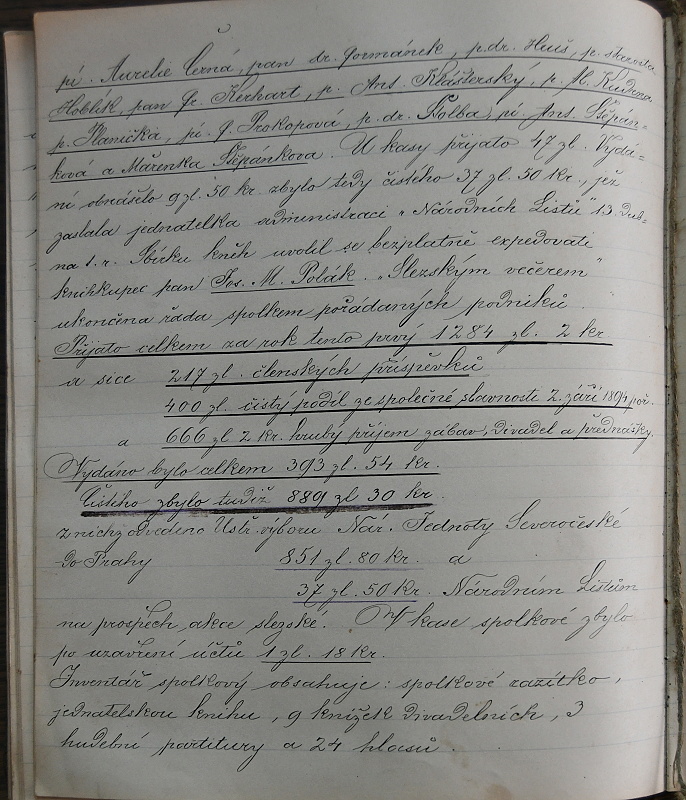 pí. Aurelie Černá, pan dr. Formánek, p. dr. Huš, p. starosta
Hoblík, pan Fr. Kerhart, p. Ant. Klášterský, p. Al. Kudrna
p. Planička, pí. J. Prokopová, p. dr. Štolba, pí. Ant. Štěpán-
ková a Mařenka Štěpánkova. U kasy přijato 47 zl. Vydá-
ní obnášelo 9 zl. 50 kr. zbylo tedy čistého 37 zl. 50 Kr., jež
zaslala jednatelka administraci "Národních Listů" 13. Dub-
na l. r. Sbírku kněh uvolil se bezplatně expedovati
knihkupec pan Jos. M. Polák. "Slezským večerem"
ukončena řada spolkem pořádaných podniků.
Přijato celkem za rok tento prvý 1284 zl. 2 kr
a sice 217 zl. členských příspěvků
400 zl. čistý podíl ze společné slavnosti 2. září 1894 poř.
a 666 zl 2 kr. hrubý příjem zábav, divadel a přednášky.
Vydáno bylo celkem 393 zl. 54 kr.
Čistého zbylo tudíž 889 zl 30 kr
z nichž odvedeno Ústř. výboru Nár. Jednoty Severočeské
do Prahy 851 zl. 80 kr. a
37 zl. 50 Kr. Národním Listům
na prospěch akce slezské. V kase spolkové zbylo
po uzavření účtů 1 zl. 18 Kr.
Inventář spolkový obsahuje: spolkové razítko,
jednatelskou knihu, 9 knížek divadelních, 3
hudební partitury a 24 hlasů.